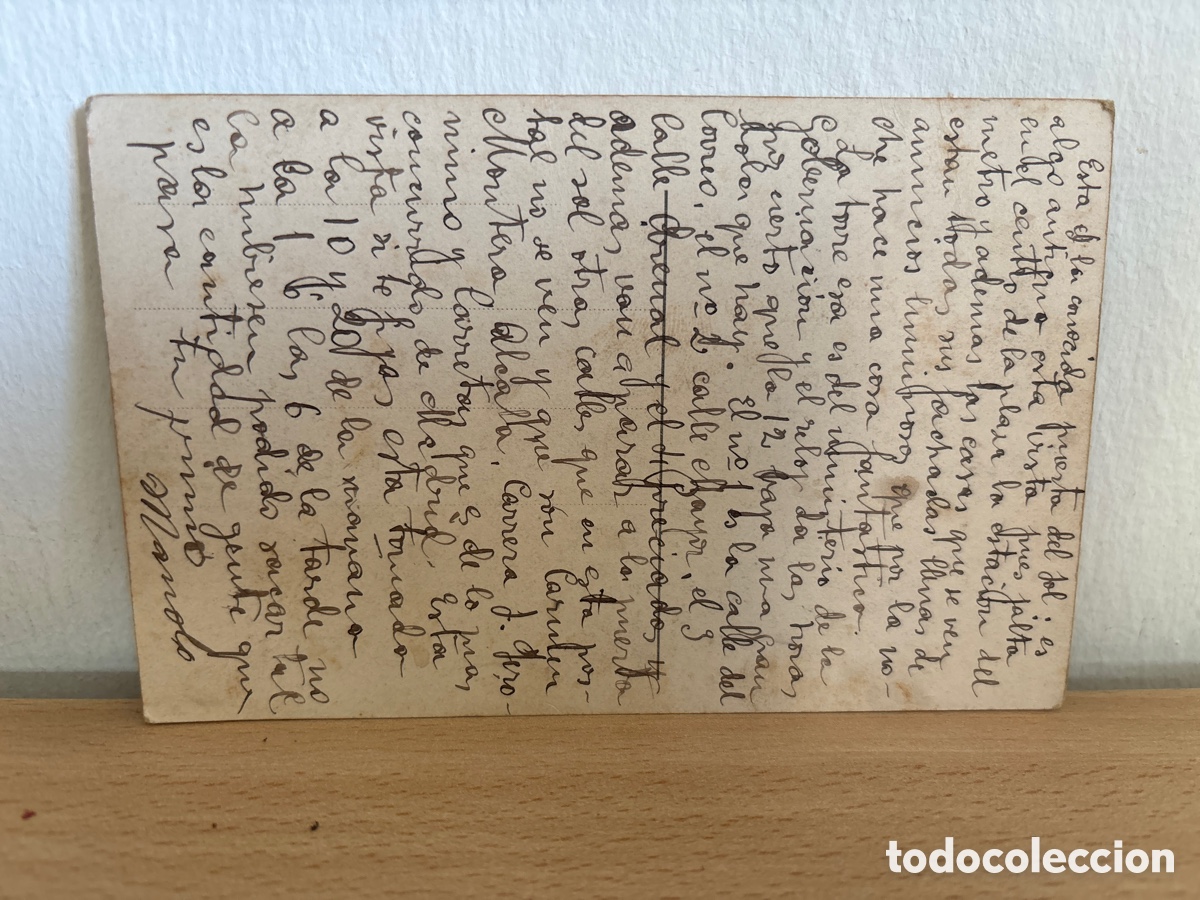 Esta es la conocida puerta del sol; es
algo antigua esta vista pues falta
en el centro de la plaza la estación del
metro y ademas las casas que se ven
estan todas sus fachadas llenas de
anuncios luminosos que por la no-
che hace una cosa fantastica.
La torre esa es del Ministerio de la
Gobernación y el reloj da las horas
por cierto que a las 12 baja una gran
bola que hay. El nº 1 es la calle del
Correo, el nº 2, calle Mayor, el 3
calle Arenal y el 4 Preciados, y
ademas van a parar a la puerta
del sol otras calles que en esta pos-
tal no se ven y que son Carmen
Montera, Alcalá, Carrera S. Jero-
nimo y Carretas que es de lo mas
concurrido de Madrid. Esta
vista si te fijas esta tomada
a la 10 y 20 de la mañana
a la 1 ó las 6 de la tarde no
la hubiesen podido sacar tal
es la cantidad de gente que
para tu primo
Manolo
todocoleccion